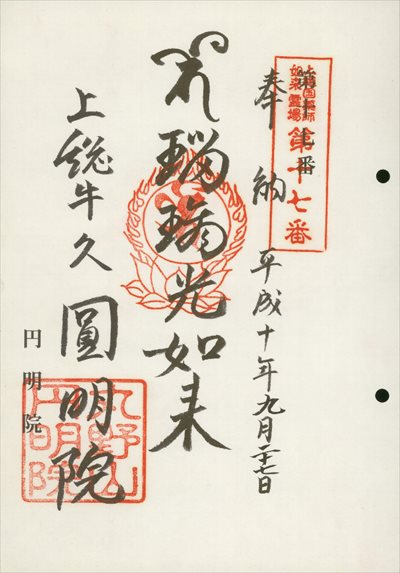 上総国薬師
如来霊場
第十七番
第十七番
奉納 平成十年九月廿七日
瑠璃光如来
上総牛久 圓明院
円明院
九野山
円明院